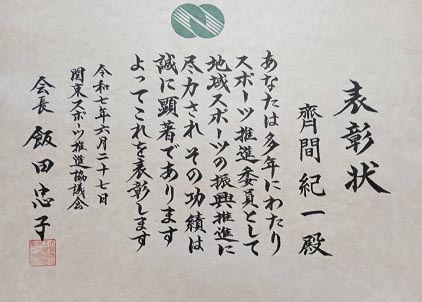 表彰状
齊間紀一殿
あなたは多年にわたり
スポーツ推進委員として
地域スポーツの振興推進に
尽力され その功績は
誠に顕著であります
よってこれを表彰します
令和七年六月二十七日
関東スポーツ推進協議会
会長 飯田忠子